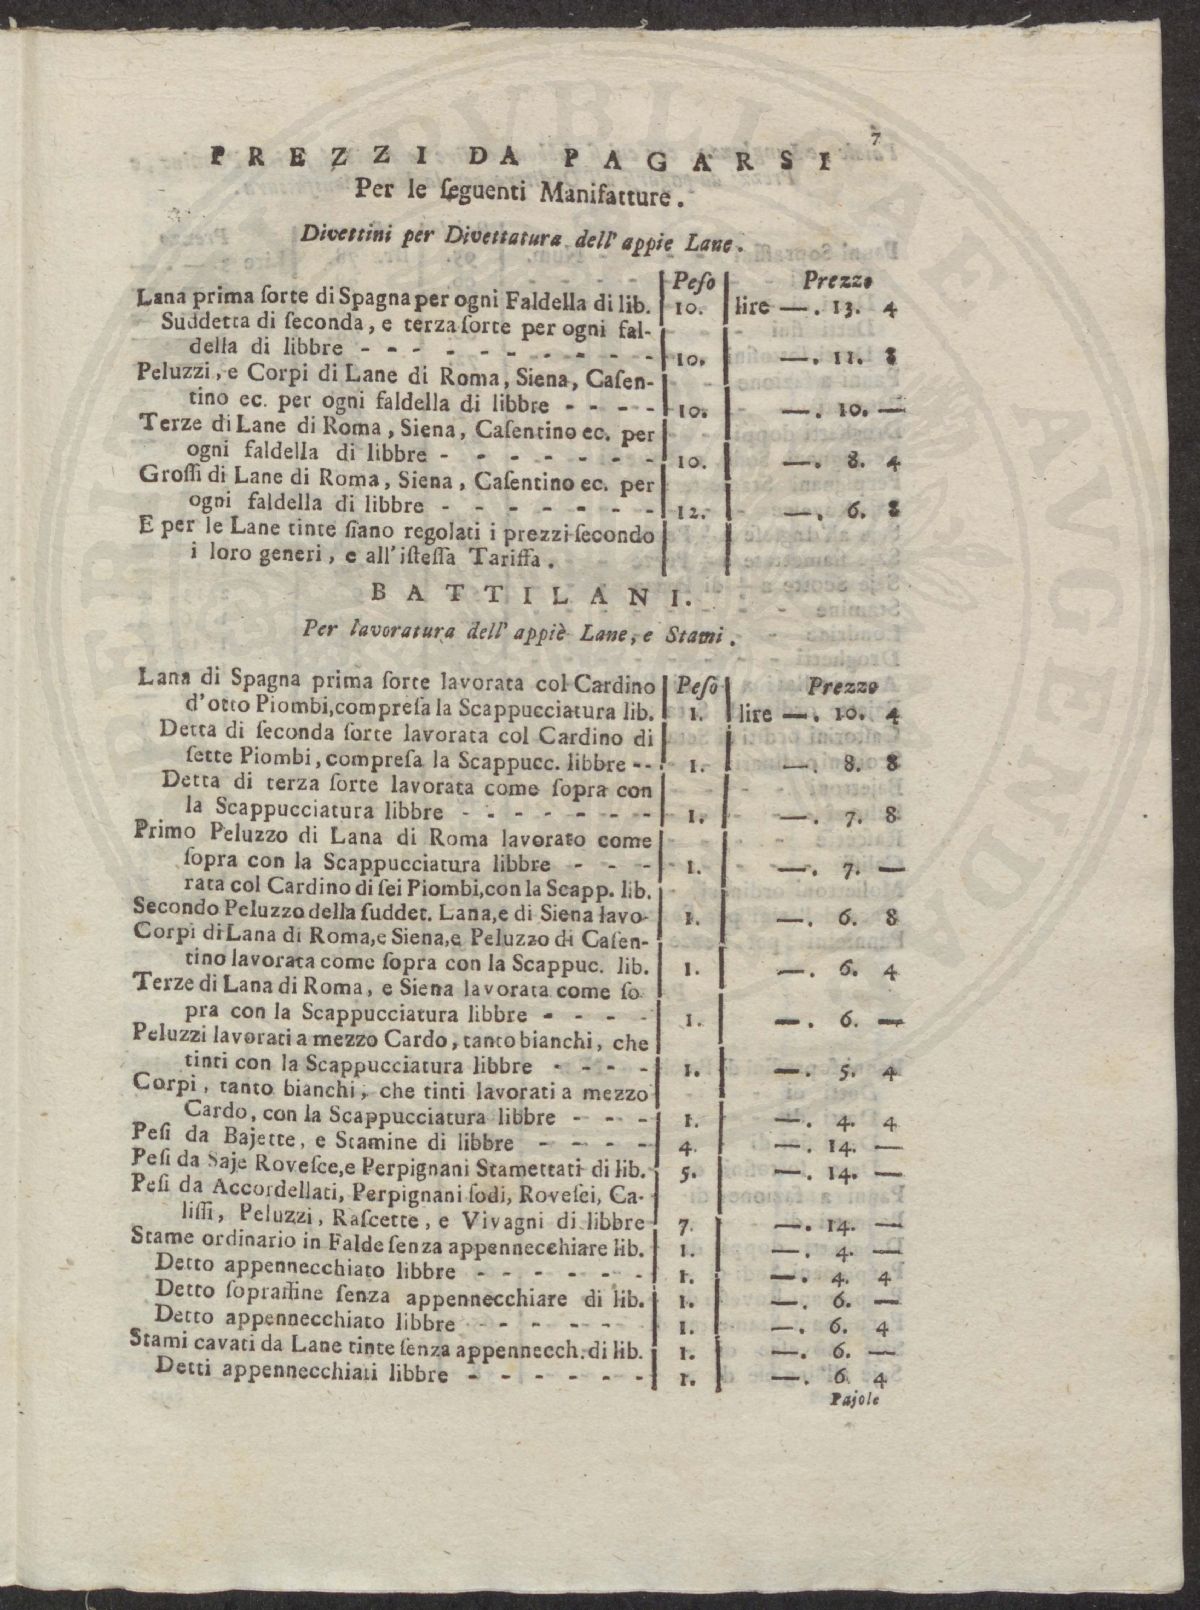 7
PREZZI DA PAGARSI
Per le ſeguenti Manifatture.
Divettini per Divettatura dell' appie Lane.
Peſo Prezzo
Lana prima ſorte di Spagna per ogni Faldella di lib. 10. lire —. 13. 4
Suddetta di ſeconda, e terza ſorte per ogni fal-
della di libbre - - - - - - - - - - 10. —. 11. 8
Peluzzi, e Corpi di Lane di Roma, Siena, Caſen-
tino ec. per ogni faldella di libbre - - - - 10. —. 10. —
Terze di Lane di Roma, Siena, Caſentino ec. per
ogni faldella di libbre - - - - - - - 10. —. 8. 4
Groſſi di Lane di Roma, Siena, Caſentino ec. per
ogni faldella di libbre - - - - - - - 12. —. 6. 8
E per le Lane tinte ſiano regolati i prezzi ſecondo
i loro generi, e all'iſteſſa Tariffa.
BATTILANI.
Per lavoratura dell' appiè Lane, e Stami.
Peſo Prezzo
Lana di Spagna prima ſorte lavorata col Cardino
d'otto Piombi, compreſa la Scappucciatura lib. 1. lire —. 10. 4
Detta di ſeconda ſorte lavorata col Cardino di
ſette Piombi, compreſa la Scappucc. libbre -- 1. —. 8. 8
Detta di terza ſorte lavorata come ſopra con
la Scappucciatura libbre - - - - - - - 1. —. 7. 8
Primo Peluzzo di Lana di Roma lavorato come
ſopra con la Scappucciatura libbre - - - 1. —. 7. —
rata col Cardino di ſei Piombi, con la Scapp. lib.
Secondo Peluzzo della ſuddet. Lana, e di Siena lavo- 1. —. 6. 8
Corpi di Lana di Roma, e Siena, e Peluzzo di Caſen-
tino lavorata come ſopra con la Scappuc. lib. 1. —. 6. 4
Terze di Lana di Roma, e Siena lavorata come ſo
pra con la Scappucciatura libbre - - - - 1. —. 6. —
Peluzzi lavorati a mezzo Cardo, tanto bianchi, che
tinti con la Scappucciatura libbre - - - - 1. —. 5. 4
Corpi, tanto bianchi, che tinti lavorati a mezzo
Cardo, con la Scappucciatura libbre - - - 1. —. 4. 4
Peſi da Bajette, e Stamine di libbre - - - - 4. —. 14. —
Peſi da Saje Roveſce, e Perpignani Stamettati di lib. 5. —. 14. —
Peſi da Accordellati, Perpignani ſodi, Roveſci, Ca-
liſſi, Peluzzi, Raſcette, e Vivagni di libbre 7. —. 14. —
Stame ordinario in Falde ſenza appennecchiare lib. 1. —. 4. —
Detto appennecchiato libbre - - - - - - 1. —. 4. 4
Detto ſopraffine ſenza appennecchiare di lib. 1. —. 6. —
Detto appennecchiato libbre - - - - - 1. —. 6. 4
Stami cavati da Lane tinte ſenza appennecch. di lib. 1. —. 6. —
Detti appennecchiati libbre - - - - - - 1. —. 6. 4
Pajole